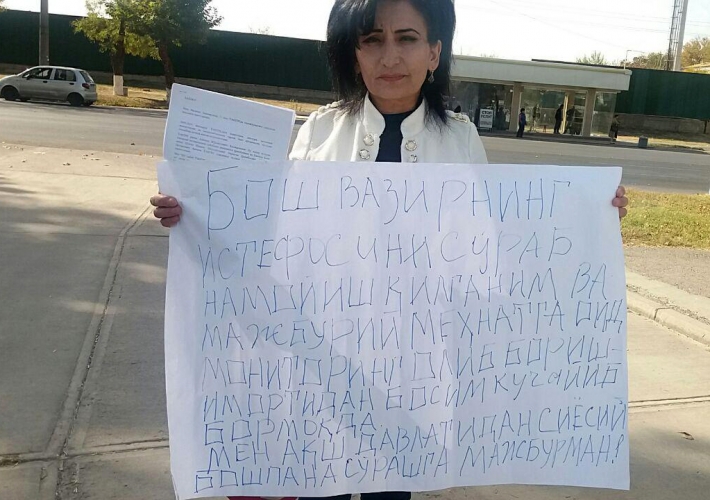 БОШ ВАЗИРНИНГ
ИСТЕФОСИНИ СУРАБ
НАМОЙИШ КИЛГАНИМ ВА
МАЖБУРИЙ МЕХНАТГА ОИД
МОНИТОРИНГ ОЛИБ БОРИШ-
ИМ ОРТИДАН БОСИМ КУЧАЙИБ
БОРМОКДА
МЕН АКШ ДАВЛАТИДАН СИЁСИЙ
БОШПАНА СУРАШГА МАЖБУРМАН!